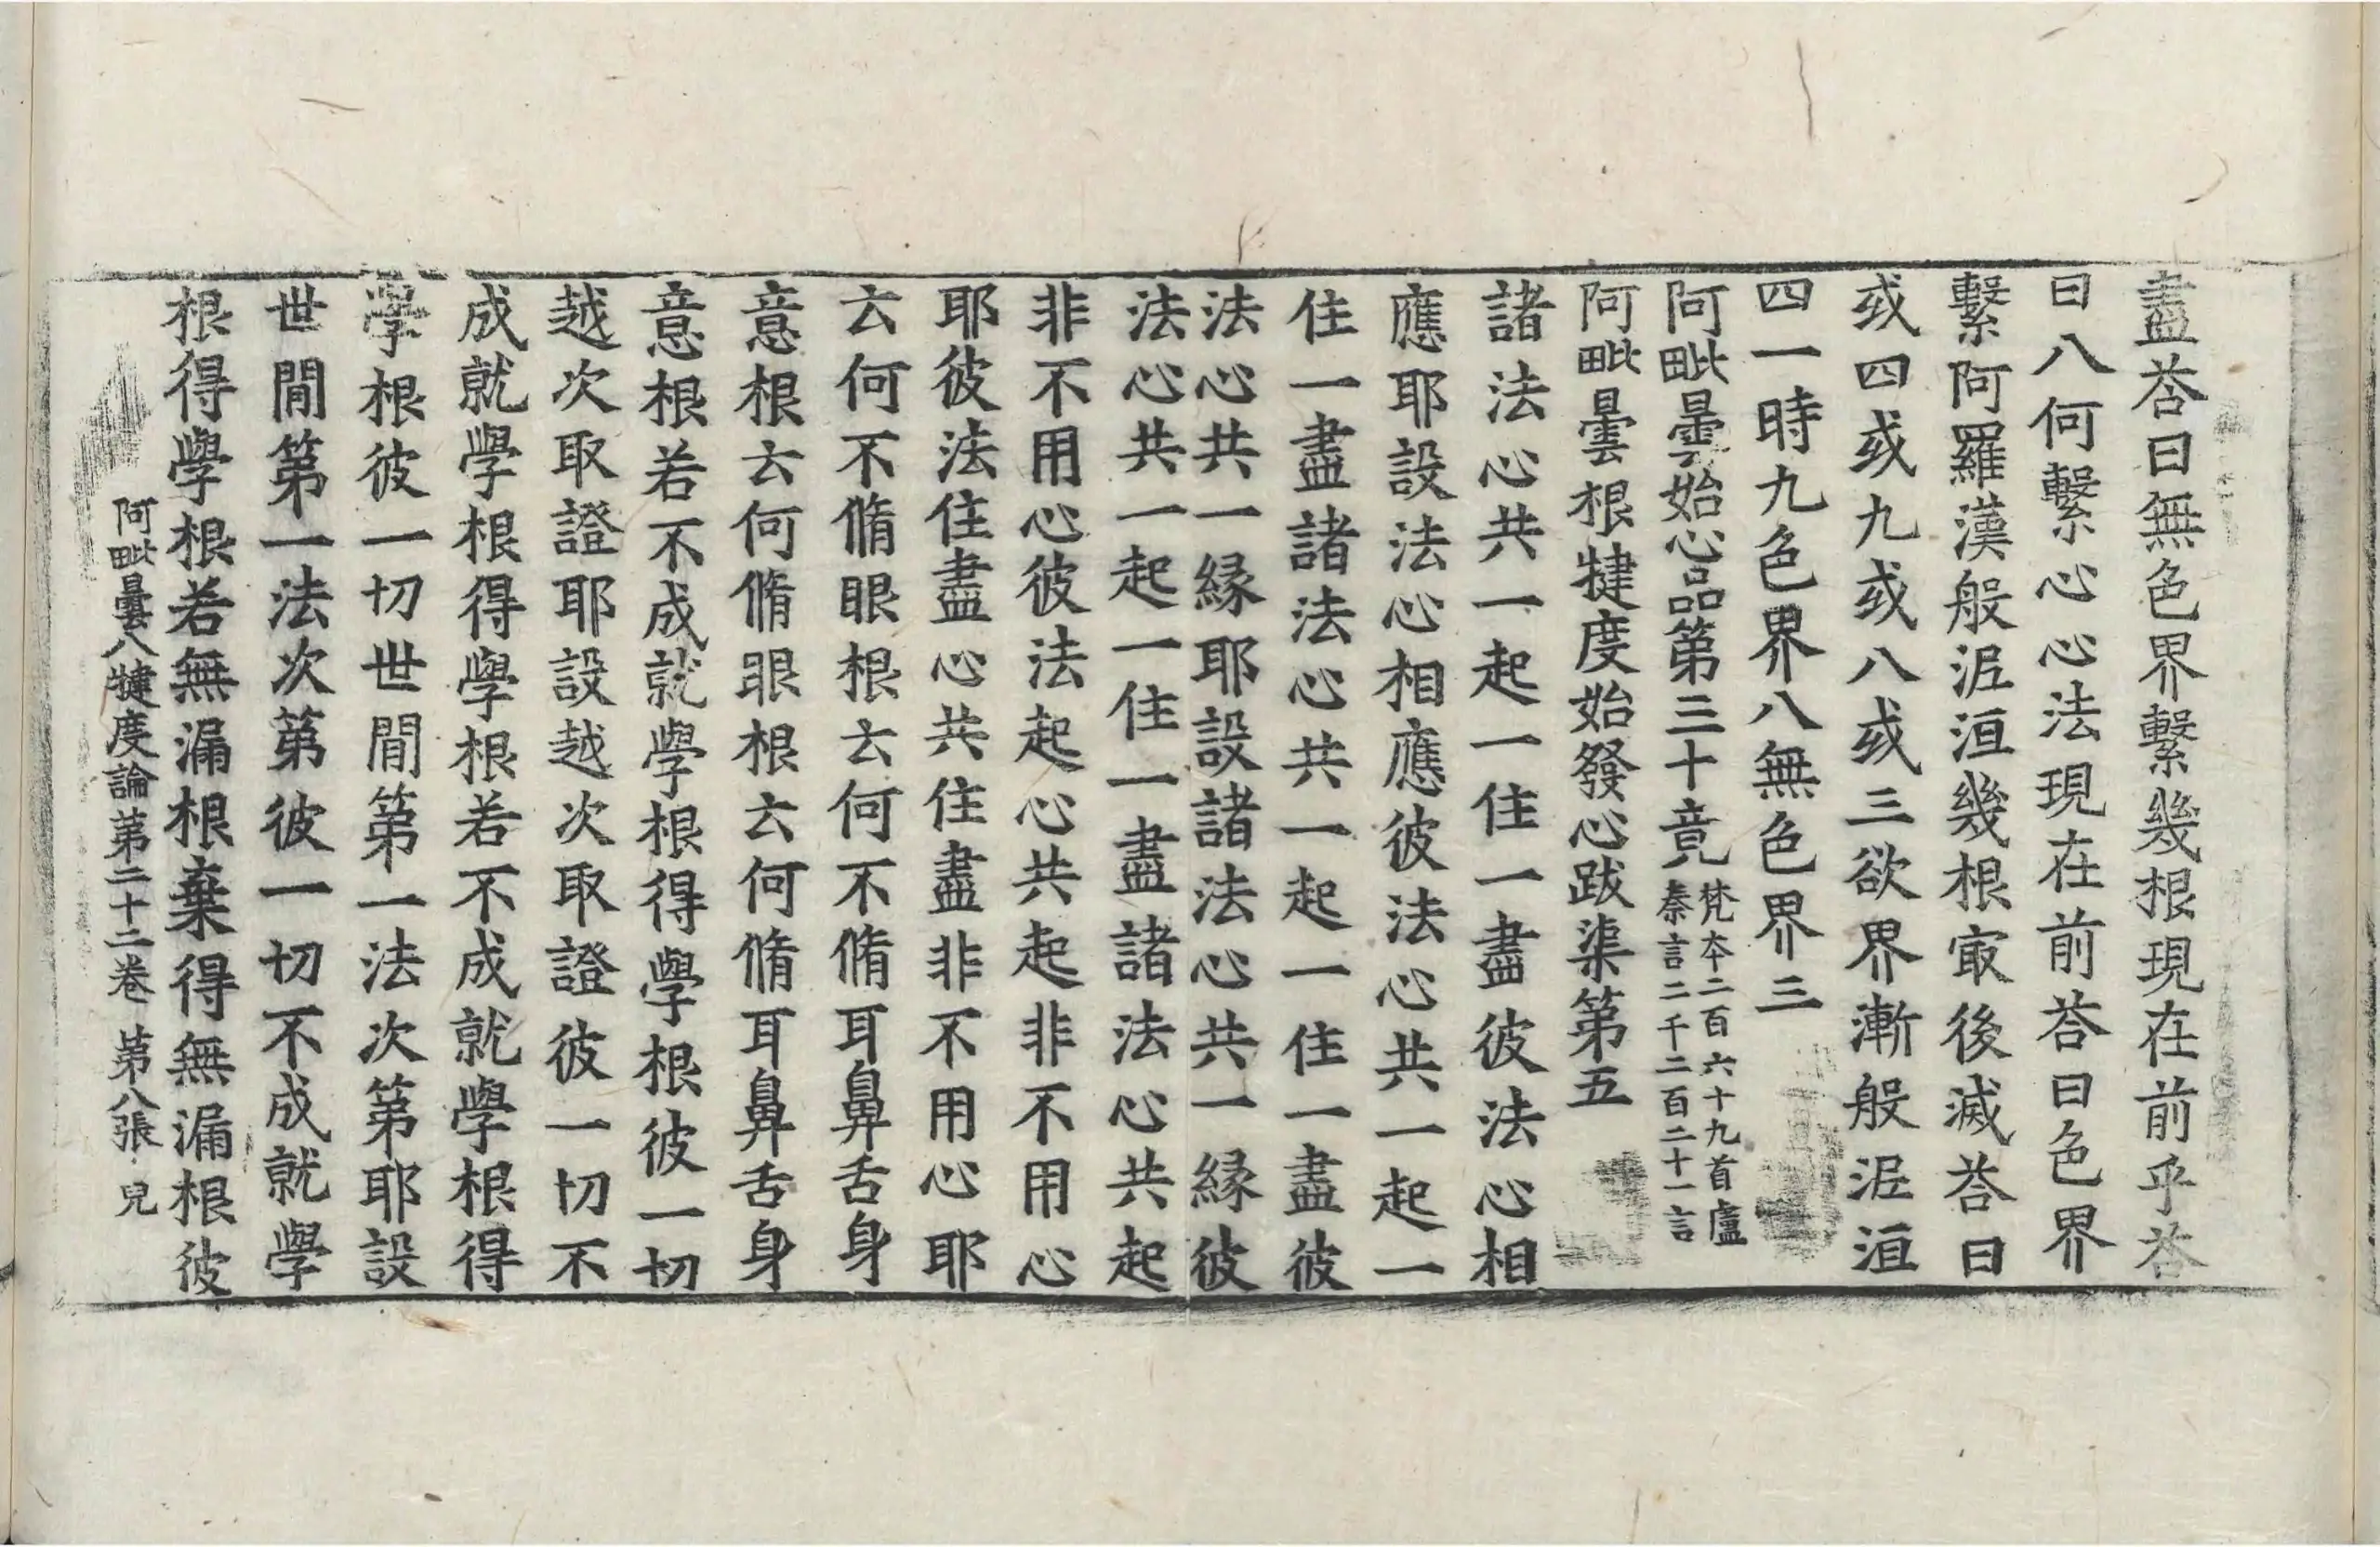 盡荅曰無色界繫幾根現在前乎荅
曰八何繫心心法現在前荅曰色界
繫阿羅漢般泥洹幾根㝡後滅荅曰
或四或九或八或三欲界漸般泥洹
四一時九色界八無色界三
阿毗曇始心品第三十竟梵本二百六十九首盧
秦言二千二百二十一言
阿毗曇根揵度始發心跋渠第五
諸法心共一起一住一盡彼法心相
應耶設法心相應彼法心共一起一
住一盡諸法心共一起一住一盡彼
法心共一緣耶設諸法心共一緣彼
法心共一起一住一盡諸法心共起
非不用心彼法起心共起非不用心
耶彼法住盡心共住盡非不用心耶
云何不脩眼根云何不脩耳鼻舌身
意根云何脩眼根云何脩耳鼻舌身
意根若不成就學根得學根彼一切
越次取證耶設越次取證彼一切不
成就學根得學根若不成就學根得
學根彼一切世閒第一法次第耶設
世閒第一法次第彼一切不成就學
根得學根若無漏根棄得無漏根彼
阿毗曇八揵度論第二十二卷 第八張 兒